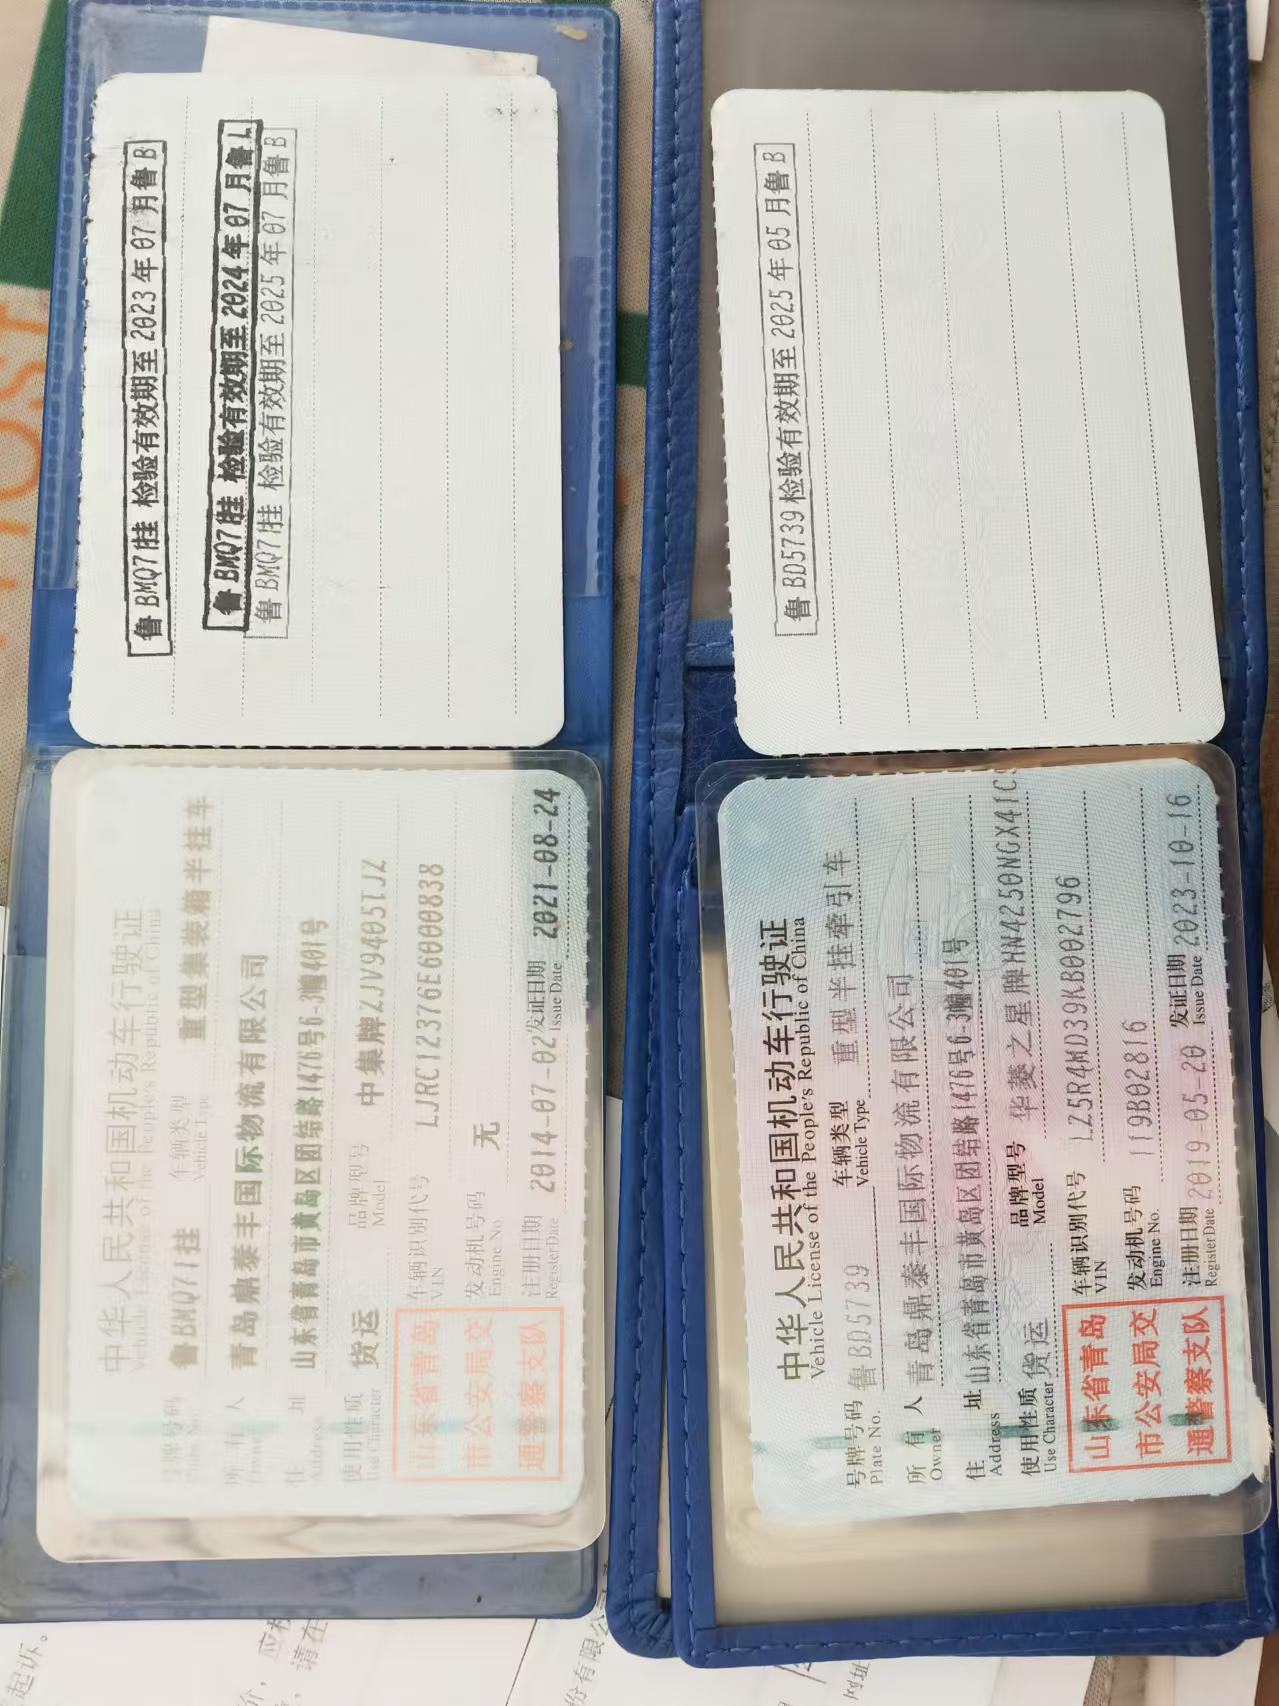 鲁BMQ71挂 检验有效期至2023年07月鲁B
鲁BMQ71挂 检验有效期至2024年07月鲁L
鲁BMQ71挂 检验有效期至2025年07月鲁B
中华人民共和国机动车行驶证
Vehicle License of the People's Republic of China
号牌号码 鲁BMQ71挂 车辆类型 重型集装箱半挂车
Plate No. Vehicle Type
所有人 青岛鼎泰丰国际物流有限公司
Owner
住址 山东省青岛市黄岛区团结路1476号6-3幢401号
Address
使用性质 货运 品牌型号 中集牌ZJV9405TJZ
Use Character Model
山东省青岛
市公安局交
通警察支队
车辆识别代号 LJRC12376E6000838
VIN
发动机号码 无
Engine No
注册日期 2014-07-02 发证日期 2021-08-24
Register Date Issue Date
鲁BD5739检验有效期至2025年05月鲁B
中华人民共和国机动车行驶证
Vehicle License of the People's Republic of China
号牌号码 鲁BD5739 车辆类型 重型半挂牵引车
Plate No. Vehicle Type
所有人 青岛鼎泰丰国际物流有限公司
Owner
住址 山东省青岛市黄岛区团结路1476号6-3幢401号
Address
使用性质 货运 品牌型号 华菱之星牌HN4250NGX41C9
Use Character Model
山东省青岛
市公安局交
通警察支队
车辆识别代号 LZ5R4MD39KB002796
VIN
发动机号码 119B02816
Engine No.
注册日期 2019-05-20 发证日期 2023-10-16
Register Date Issue Date
起诉。
请在
份有限公
网址